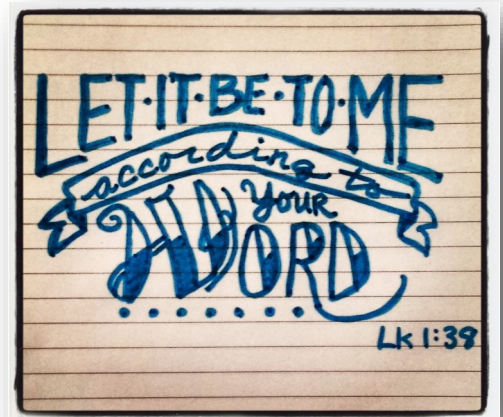 LET·IT·BE·TO·ME
according to
YOUR
WORD
Lk 1:38